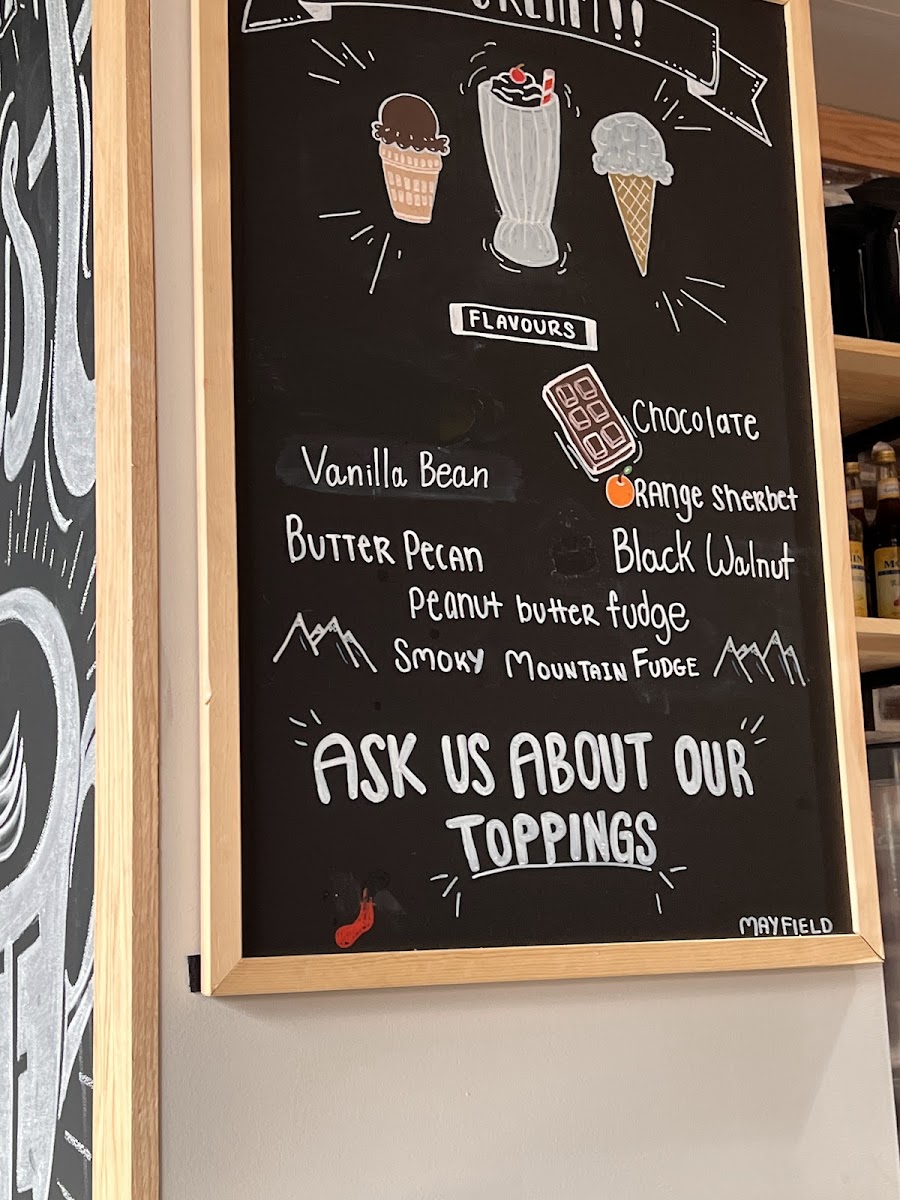 CREAM!!
FLAVOURS
Chocolate
Vanilla Bean
ORange Sherbet
Butter Pecan
Black Walnut
Peanut butter fudge
Smoky Mountain Fudge
ASK US ABOUT OUR
TOPPINGS
MAYFIELD